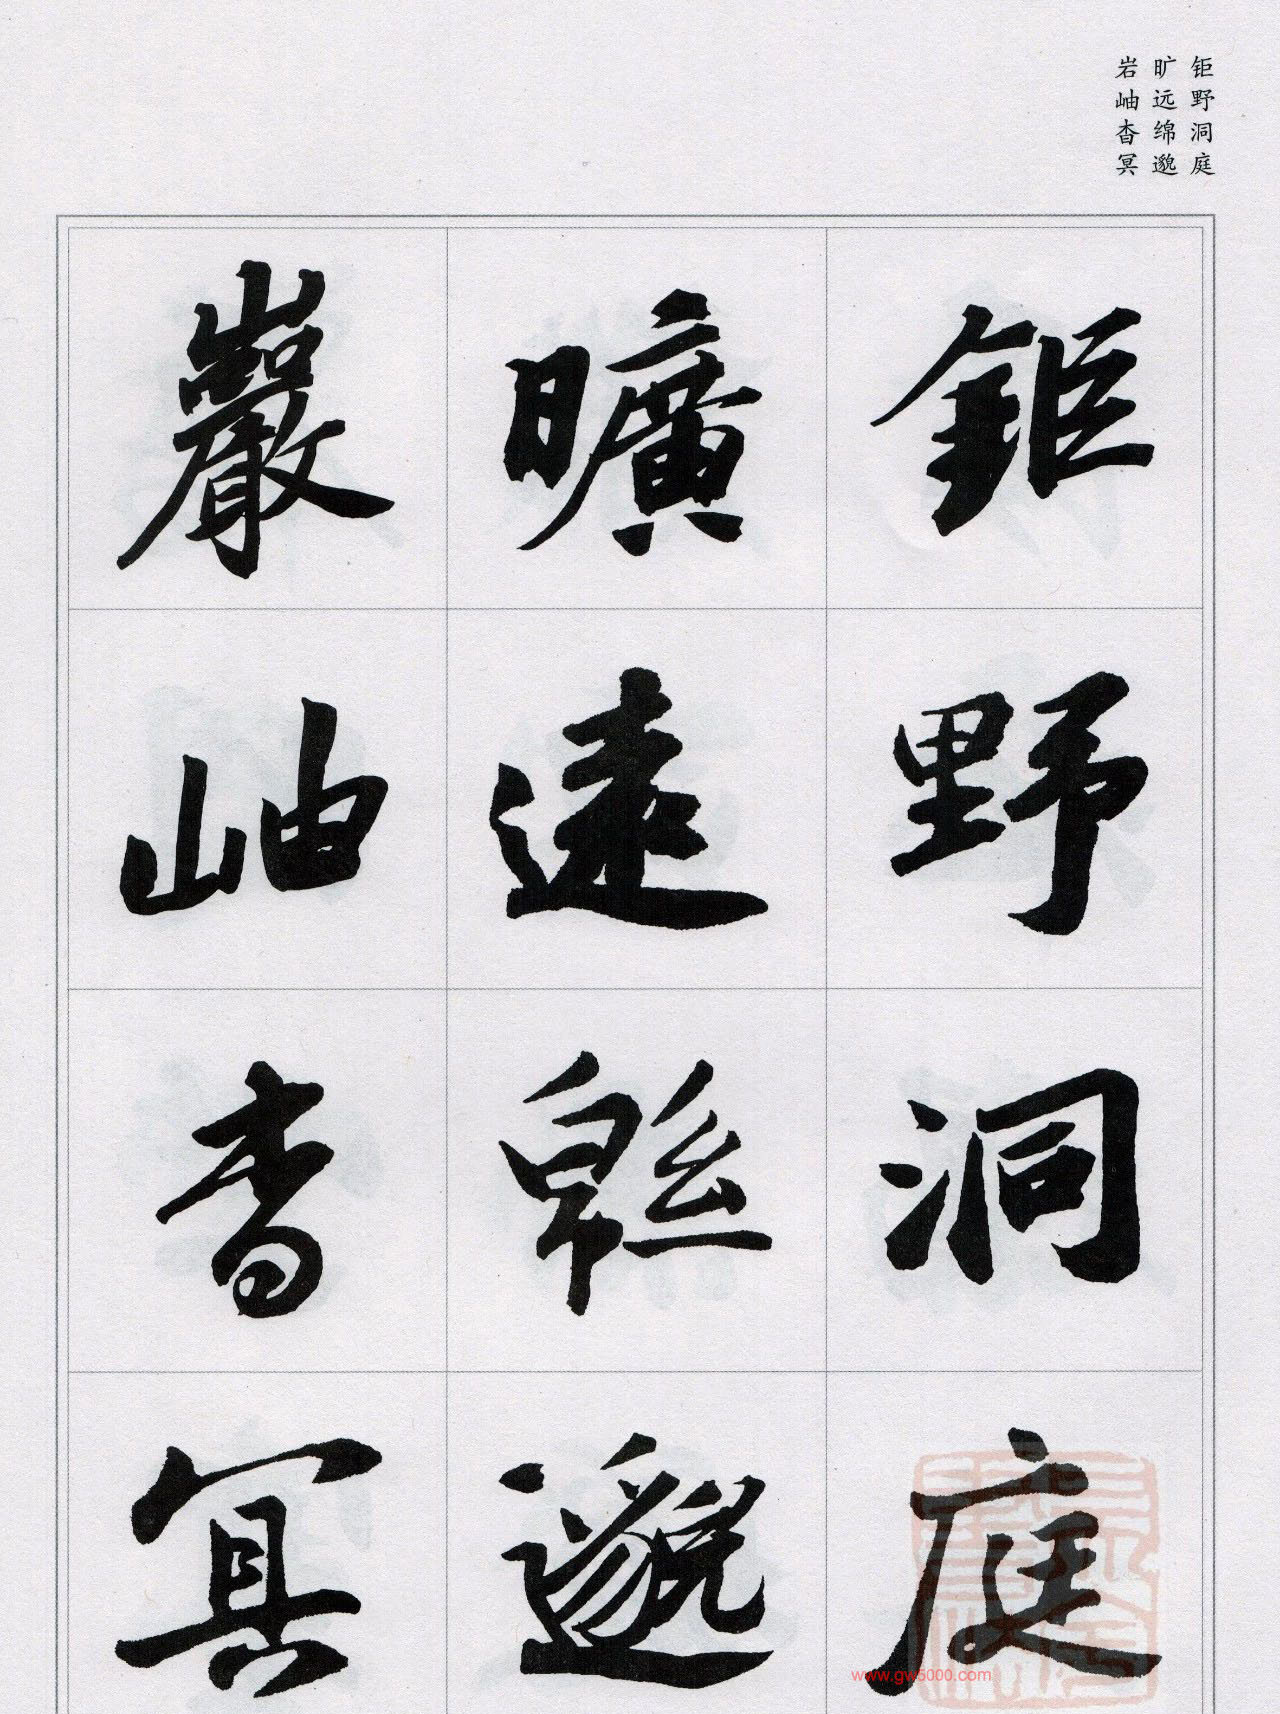 钜野洞庭
旷远绵邈
岩岫杳冥
鉅野洞庭
曠遠緜邈
巖岫杳冥
www.gw5000.com